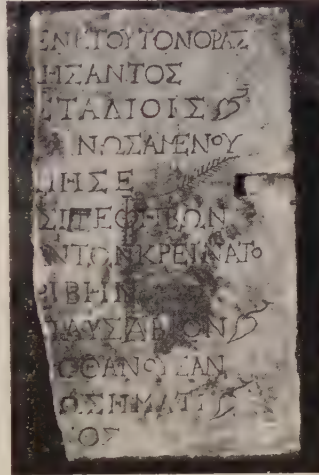 ΕΝΕΚΤΟΥΤΟΝΟΡΑΣ
ΗΣΑΝΤΟΣ
ΣΤΑΔΙΟΙΣ
ΝΩΣΑΜΕΝΟΥ
ΠΗΣΕ
ΝΤΩΝΚΡΕΙΝΑΤΟ
ΡΙΒΗΝ
ΠΑΥΣΑΒΙΟΝ
ΟΘΑΝΟΥΣΑΝ
ΩΣΗΜΑΤΙ
ΟΣ